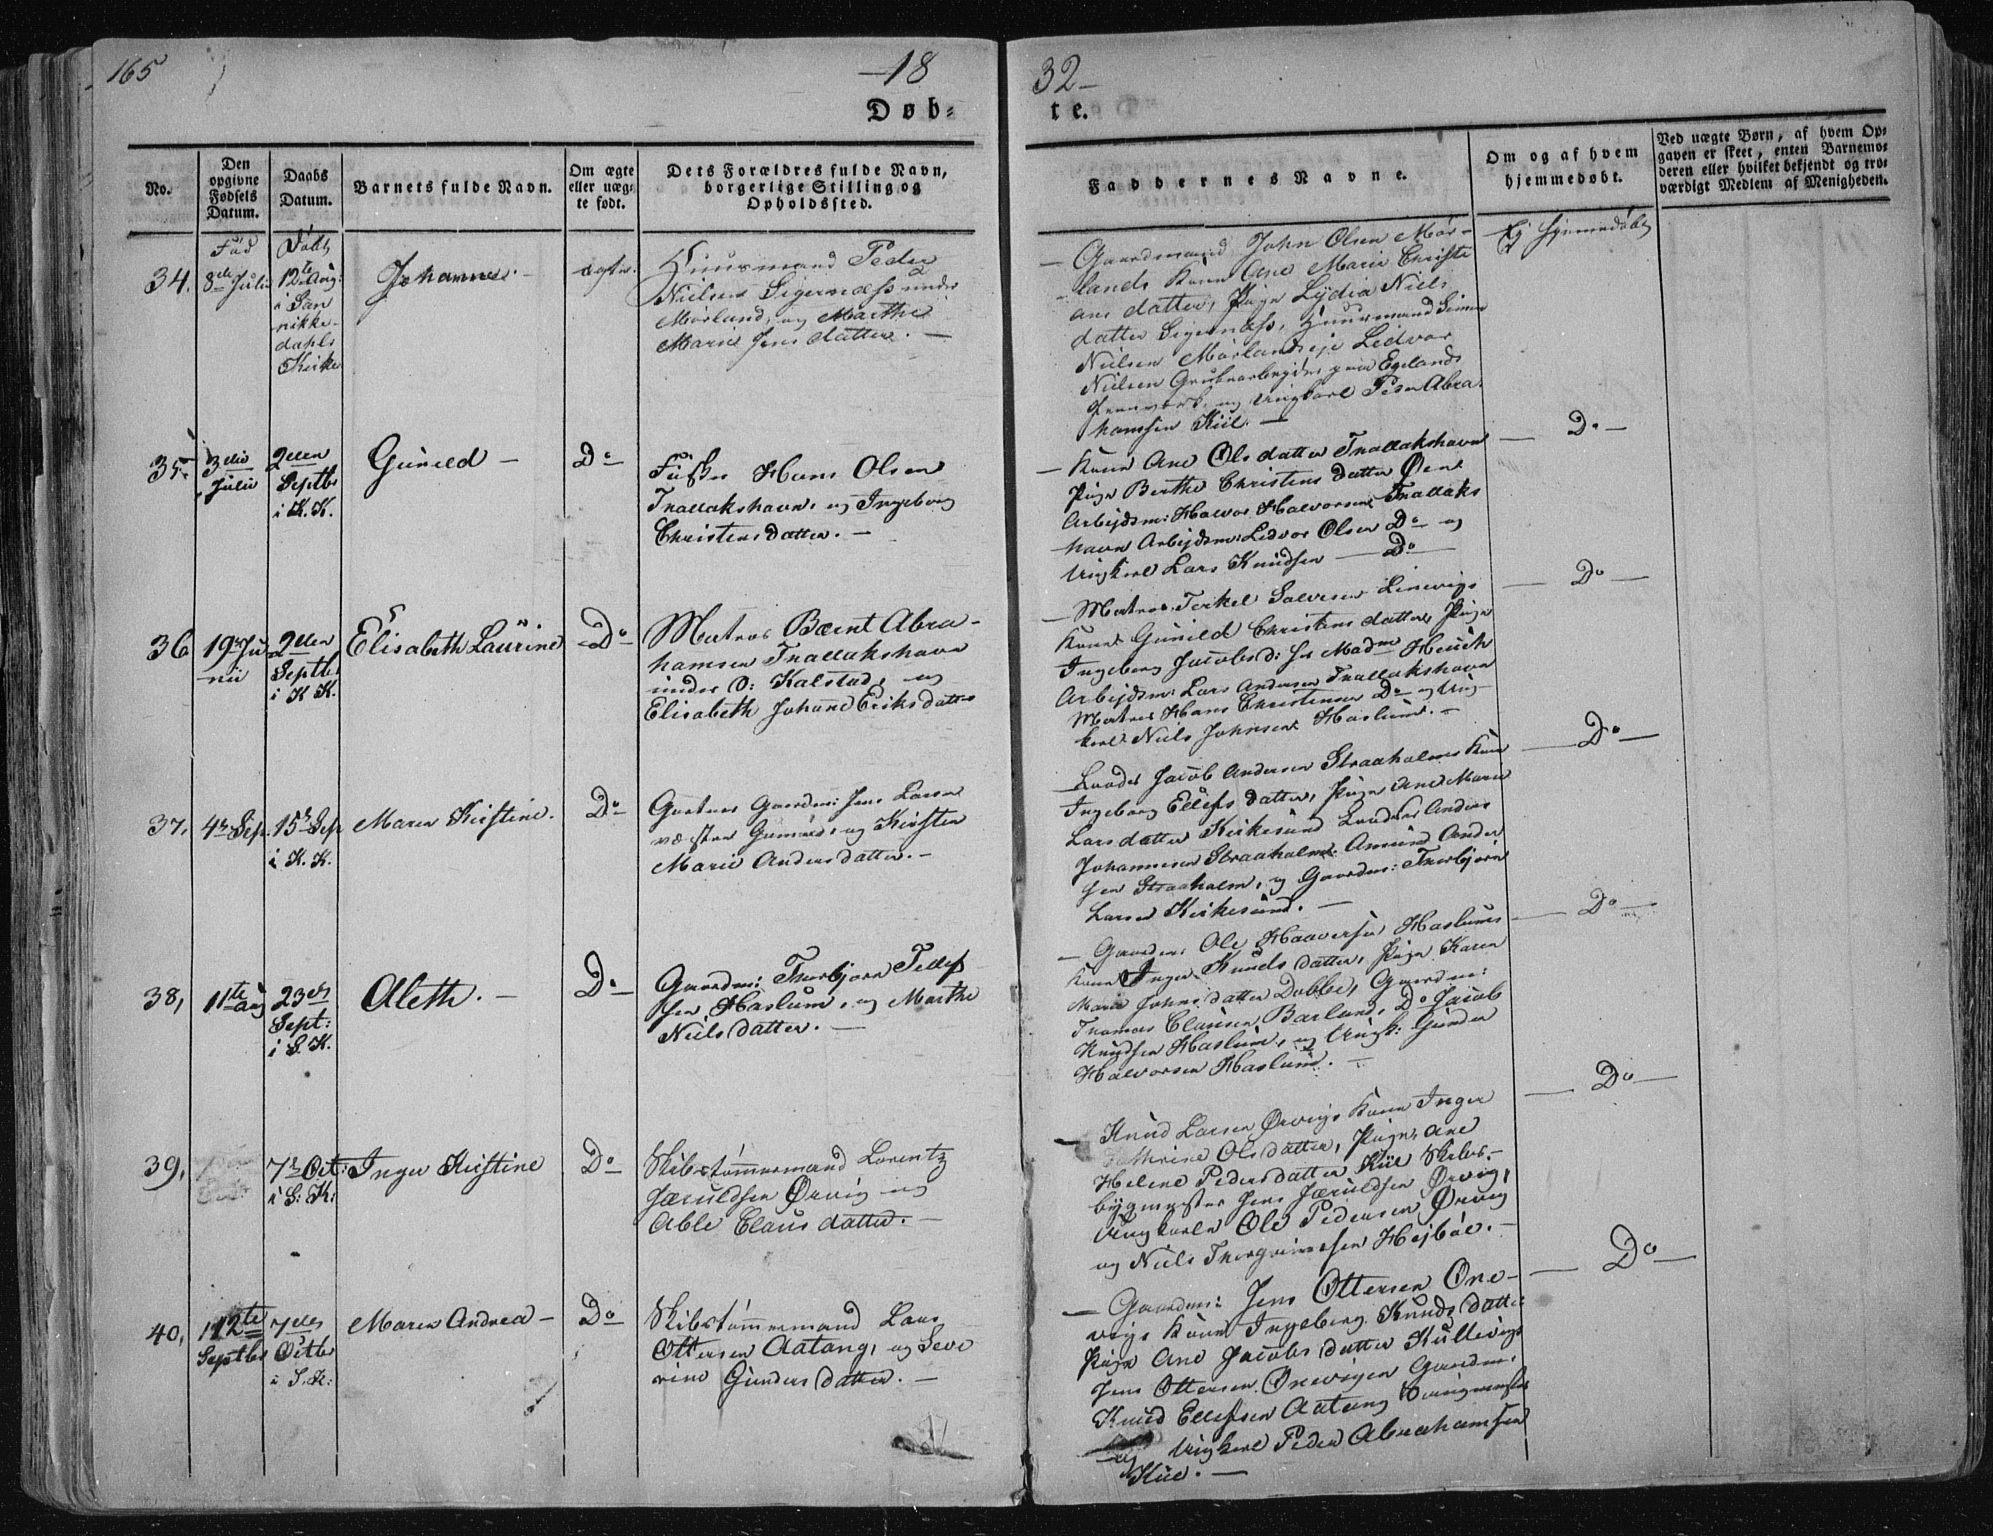 165
-18
32-
Døb-
te.
No.
Den opgivne Fødsels Datum.
Daabs Datum.
Barnets fulde Navn.
Om ægte eller uægte født.
Dets Forældres fulde Navn, borgerlige Stilling og Opholdssted.
Faddernes Navne.
Om og af hvem hjemmedøbt.
Ved uægte Børn, af hvem Opgaven er skeet, enten Barnemoderen eller hvilket bekjendt og troværdigt Medlem af Menigheden.
Fød
Døbt
34.
8de Julii
12te Aug:
i San
nikke-
dahls
Kirke
Johannes.
ægte.
Huusmand Peder
Nielsen Sigernæss under
Mørland, og Marthe
Marie Jens datter. —
— Gaardmand John Olsen Mør-
lands Kone Ane Marie Christi
ans datter, Pige Lydia Niels
datter Sigernæss, Huusmand Simon
Nielsen Mørlandseje Ledvor
Nielsen Grubearbejder paa Egelands
Jernværk, og Ungkarl Peder Abra
hamsen Kiil. —
Ej hjemmedøbt
35.
3die
Julii
2den
Septbr
i K. K.
Gunild —
Do
Fisker Hans Olsen
Trallakshavn, og Ingeborg
Christens datter. —
— Kone Ane Ols datter Trallakshavn
Pige Berthe Christens datter Øene
Arbejdsm: Halvor Halvorsen Trallaks
havn Arbejdsm: Ledvor Olsen Do og
Ungkarl Lars Knudsen — Do
— Do —
36
19de Ju
nii
2den
Septbr
i K. K.
Elisabeth Laurine
Do
Matros Bærnt Abra-
hamsen Trallakshavn
under O: Kalstad, og
Elisabeth Johane Eriks datter
— Matros Terkel Salvesen Linevigs
Kone Gunild Christens datter, Pige
Ingeborg Jacobsd: hos Madme Heuch
Arbejdsm: Lars Andersen Trallakshavn
Matros Hans Christensen Do og Ung-
karl Niels Johnsen Haslum. —
— Do —
37.
4de Sep.
15de Sep
i K. K.
Maren Kirstine.
Do
Gaardm: Jens Larsen
og Kirsten
Marie Anders datter. —
Lods Jacob Andersen Straaholmes Kone
Ingeborg Ellefs datter, Pige Ane Marie
Lars datter Kirkesund Lods Anders
Johannesen Straaholm Amund Ander
sen Straaholm, og Gaardm: Thorbjørn
Larsen Kirkesund. —
— Do —
38,
11te Aug
23de
Sept:
i S. K.
Aleth. —
Do
Gaardm: Thorbjørn Tellef
sen Haslum, og Marthe
Niels datter. —
— Gaardm: Ole Haaversen Haslums
Kone Inger Knuds datter, Pige Karen
Marie Johns datter Dobbe, Gaardm:
Thomas Clausen Barland, Do Jacob
Knudsen Haslum, og Ungk: Gunder
Halvorsen Haslum. —
— Do —
39,
7de Oct:
i S: K:
Inger Kirstine
Do
Skibstømmermand Lorentz
Jæruldsen Ørvig og
Able Claus datter. —
— Knud Larsen Ørvigs Kone Inger
Cathrine Ols datter, Pige Ane
Helene Peders datter Kiil Skibs-
bygmester Jens Jæruldsen Ørvig,
Ungkarle Ole Pedersen Ørvig
og Niels Thorgrimsen Højbøe. —
— Do —
40,
12te
Septbr
7de
Octbr
i S. K:
Maren Andrea —
Do
Skibstømmermand Lars
Ottersen Aatang, og Seve
rine Gunders datter. —
— Gaardm: Jens Ottersen Øne-
vigs Kone Ingeborg Knuds datter
Pige Ane Jacobs datter Kullevigs
Jens Ottersen Ønevigen Gaardm:
Knud Ellefsen Aatang
og Ungkarl Peder Abrahamsen
Kiil. —
— Do —